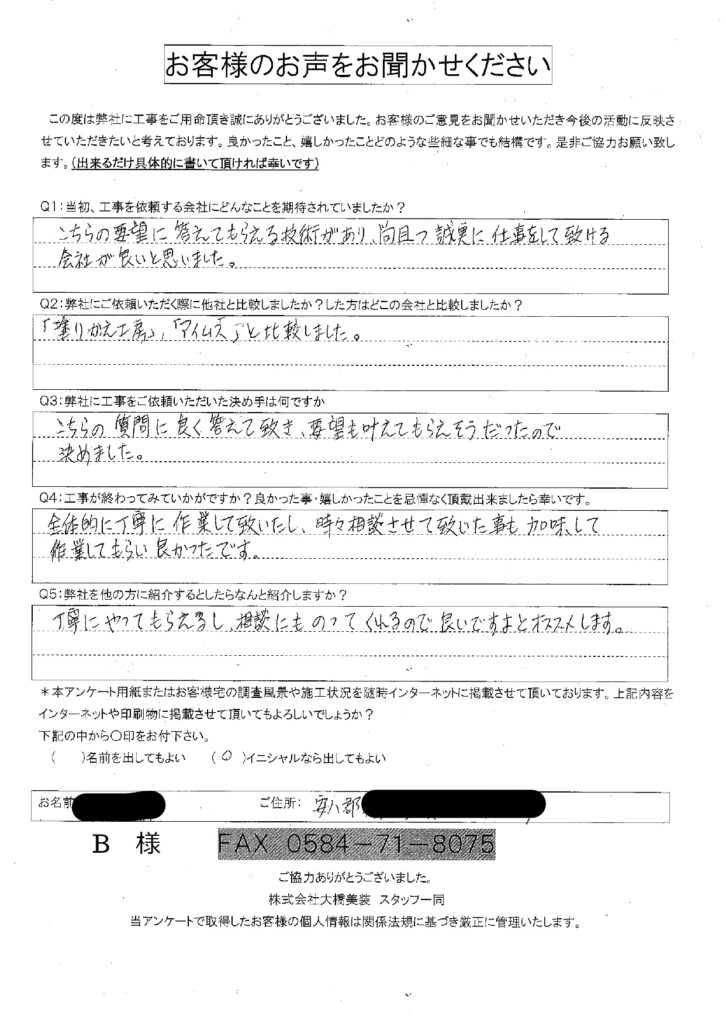 お客様のお声をお聞かせください
この度は弊社に工事をご用命頂き誠にありがとうございました。お客様のご意見をお聞かせいただき今後の活動に反映さ
せていただきたいと考えております。良かったこと、嬉しかったことどのような些細な事でも結構です。是非ご協力お願い致し
ます。(出来るだけ具体的に書いて頂ければ幸いです)
Q1:当初、工事を依頼する会社にどんなことを期待されていましたか?
こちらの要望に答えてもらえる技術があり、尚且つ誠実に仕事をして致ける
会社が良いと思いました。
Q2:弊社にご依頼いただく際に他社と比較しましたか?した方はどこの会社と比較しましたか?
「塗りかえ工房」,「アイムズ」と比較しました。
Q3:弊社に工事をご依頼いただいた決め手は何ですか
こちらの質問に良く答えて致き、要望も叶えてもらえそうだったので
決めました。
Q4:工事が終わってみていかがですか?良かった事・嬉しかったことを忌憚なく頂戴出来ましたら幸いです。
全体的に丁寧に作業して致いたし、時々相談させて致いた事も加味して
作業してもらい良かったです。
Q5:弊社を他の方に紹介するとしたらなんと紹介しますか?
丁寧にやってもらえるし、相談にものってくれるので良いですよとオススメします。
*本アンケート用紙またはお客様宅の調査風景や施工状況を随時インターネットに掲載させて頂いております。上記内容を
インターネットや印刷物に掲載させて頂いてもよろしいでしょうか?
下記の中から〇印をお付下さい。
(　　)名前を出してもよい　　(○)イニシャルなら出してもよい
お名前　　ご住所: 安八郡
B 様　　FAX 0584-71-8075
ご協力ありがとうございました。
株式会社大橋美装 スタッフ一同
当アンケートで取得したお客様の個人情報は関係法規に基づき厳正に管理いたします。